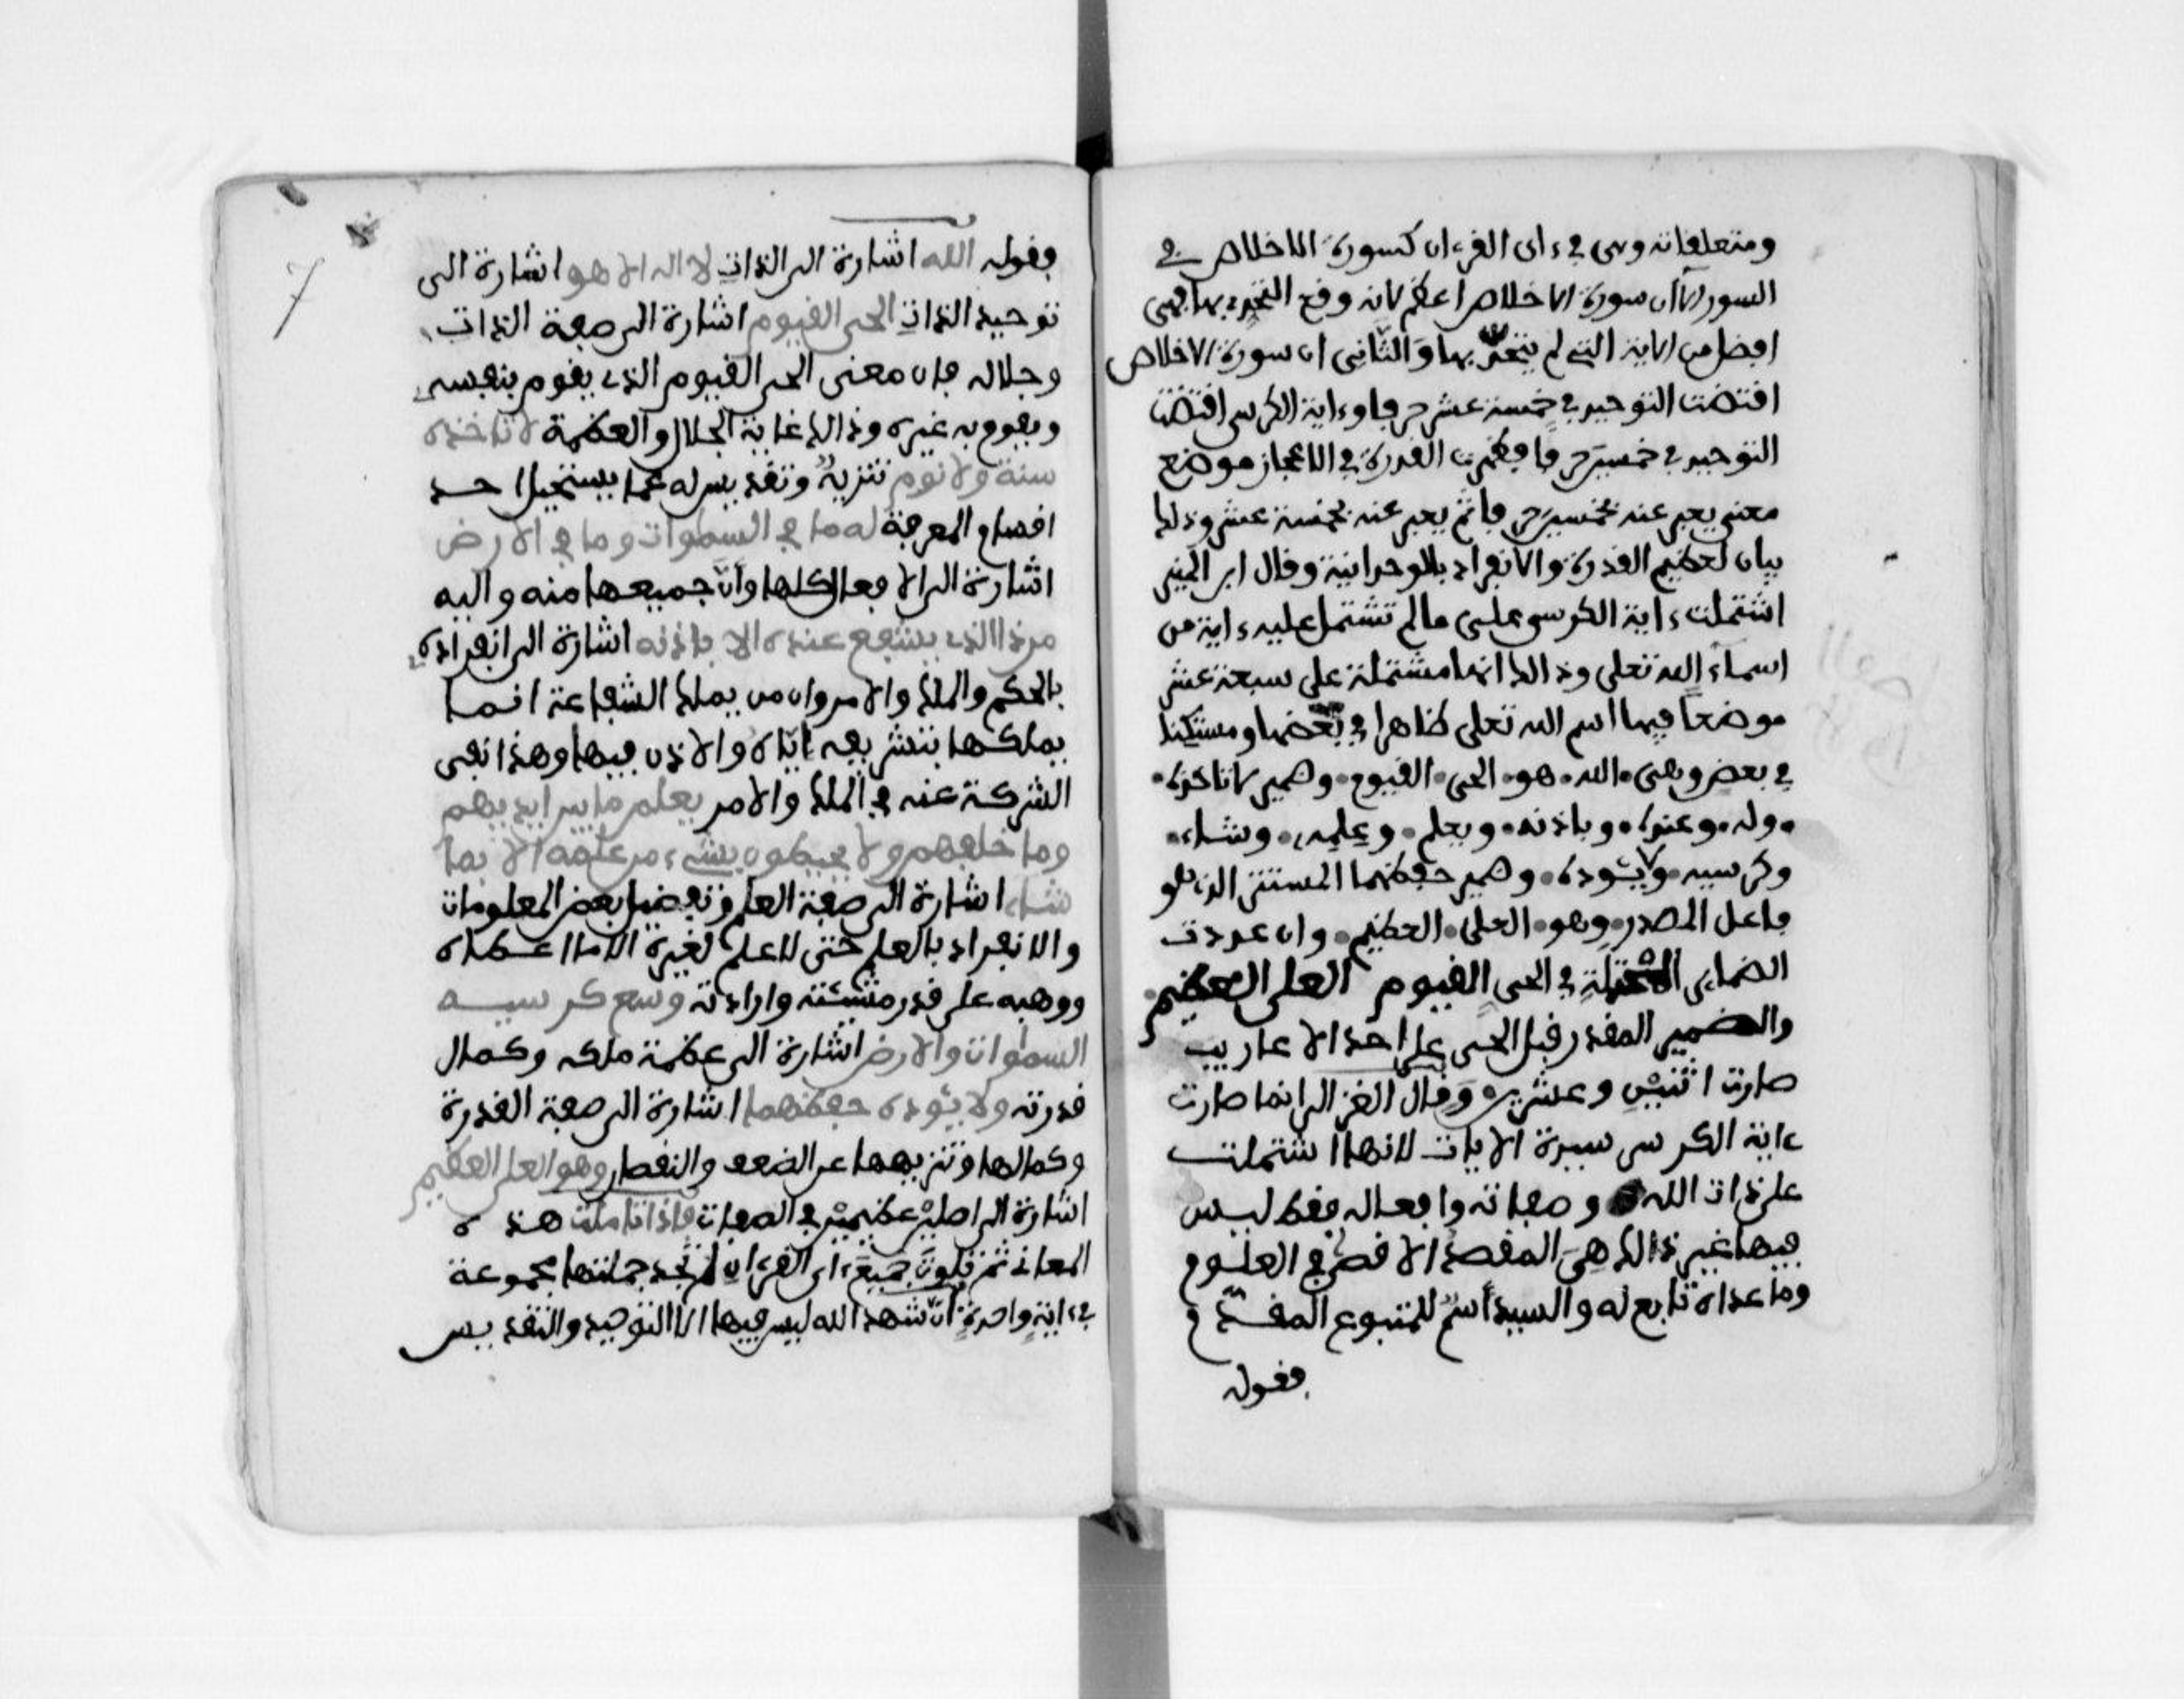 ومتعلقاته وهى في ءاى القرءان كسورة الاخلاص في
السور الا ان سورة الاخلاص اعظم لانه وقع التحدى بها فهى
افضل من الاية التى لم يتحدّ بها والثانى ان سورة الاخلاص
اقتضت التوحيد في خمسة عشر حرفا وءاية الكرسى اقتضت
التوحيد في خمسين حرفا فظهرت القدرة في الاعجاز موضع
معنى يعبر عنه بخمسين حرفا ثم يعبر عنه بخمسة عشر وذلك
بيان لعظيم القدرة والانفراد بالوحدانية وقال ابن المنير
اشتملت ءاية الكرسى على ما لم تشتمل عليه ءاية من
اسماء الله تعلى وذالك انها مشتملة على سبعة عشر
موضعا فيها اسم الله تعلى ظاهرا في بعضها ومستكنا
في بعض وهى الله هو الحى القيوم وضمير لا تاخذه
وله وعنده وباذنه ويعلم وعلمه وشاء
وكرسيه ولا يئوده وضمير حفظهما المستتر الذى هو
فاعل المصدر وهو العلى العظيم وان عددت
الضماير المحتملة في الحى القيوم العلى العظيم
والضمير المقدر قبل الحى على احد الاعاريب
صارت اثنين وعشرين وقال الغزالى انما صارت
ءاية الكرسى سيدة الايات لانها اشتملت
على ذات الله وصفاته وافعاله فقط ليس
فيها غير ذالك هى المقصد الاقصى في العلوم
وما عداه تابع له والسيد اسم للمتبوع المقدم
فقوله
فقوله الله اشارة الى الذات لا اله الا هو اشارة الى
توحيد الذات الحى القيوم اشارة الى صفة الذات
وجلاله فان معنى الحى القيوم الذى يقوم بنفسه
ويقوم به غيره وذالك غاية الجلال والعظمة لا تاخذه
سنة ولا نوم تنزيه وتقديس له عما يستحيل
المعرفة له ما في السموات وما في الارض
اشارة الى الافعال كلها وان جميعها منه واليه
من ذا الذى يشفع عنده الا باذنه اشارة الى انفراده
بالحكم والملك والامر وان من يملك الشفاعة انما
يملكها بتشريفه اياه والاذن فيها وهذا نفى
الشركة عنه في الملك والامر يعلم ما بين ايديهم
وما خلفهم ولا يحيطون بشىء من علمه الا بما
شاء اشارة الى صفة العلم وتفضيل بعض المعلومات
والانفراد بالعلم حتى لا علم لغيره الا ما اعطاه
ووهبه على قدر مشيئته وارادته وسع كرسيه
السموات والارض اشارة الى عظمة ملكه وكمال
قدرته ولا يئوده حفظهما اشارة الى صفة القدرة
وكمالها وتنزيهها عن الضعف والنقصان وهو العلى العظيم
اشارة الى اصلين عظيمين في الصفات فاذا تاملت هذه
المعانى ثم تلوت جميع ءاى القرءان لم تجد جملتها مجموعة
في ءاية واحدة ان شهد الله ليس فيها الا التوحيد والتقديس